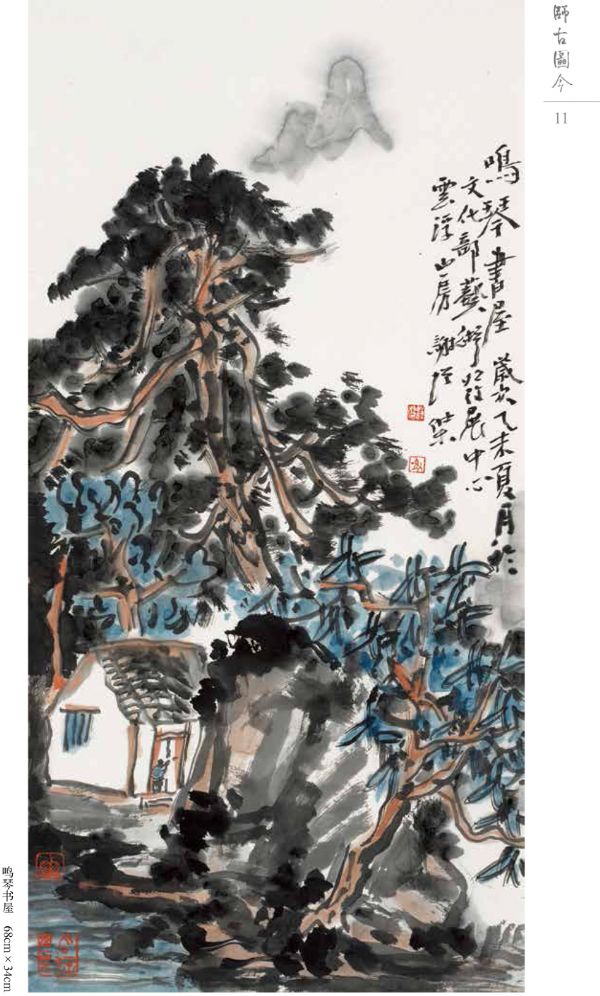 師古圖今
11
鳴琴書屋 歲次乙未夏月於
文化部藝術發展中心
雲浮山房 謝
鸣琴书屋 68cm×34cm